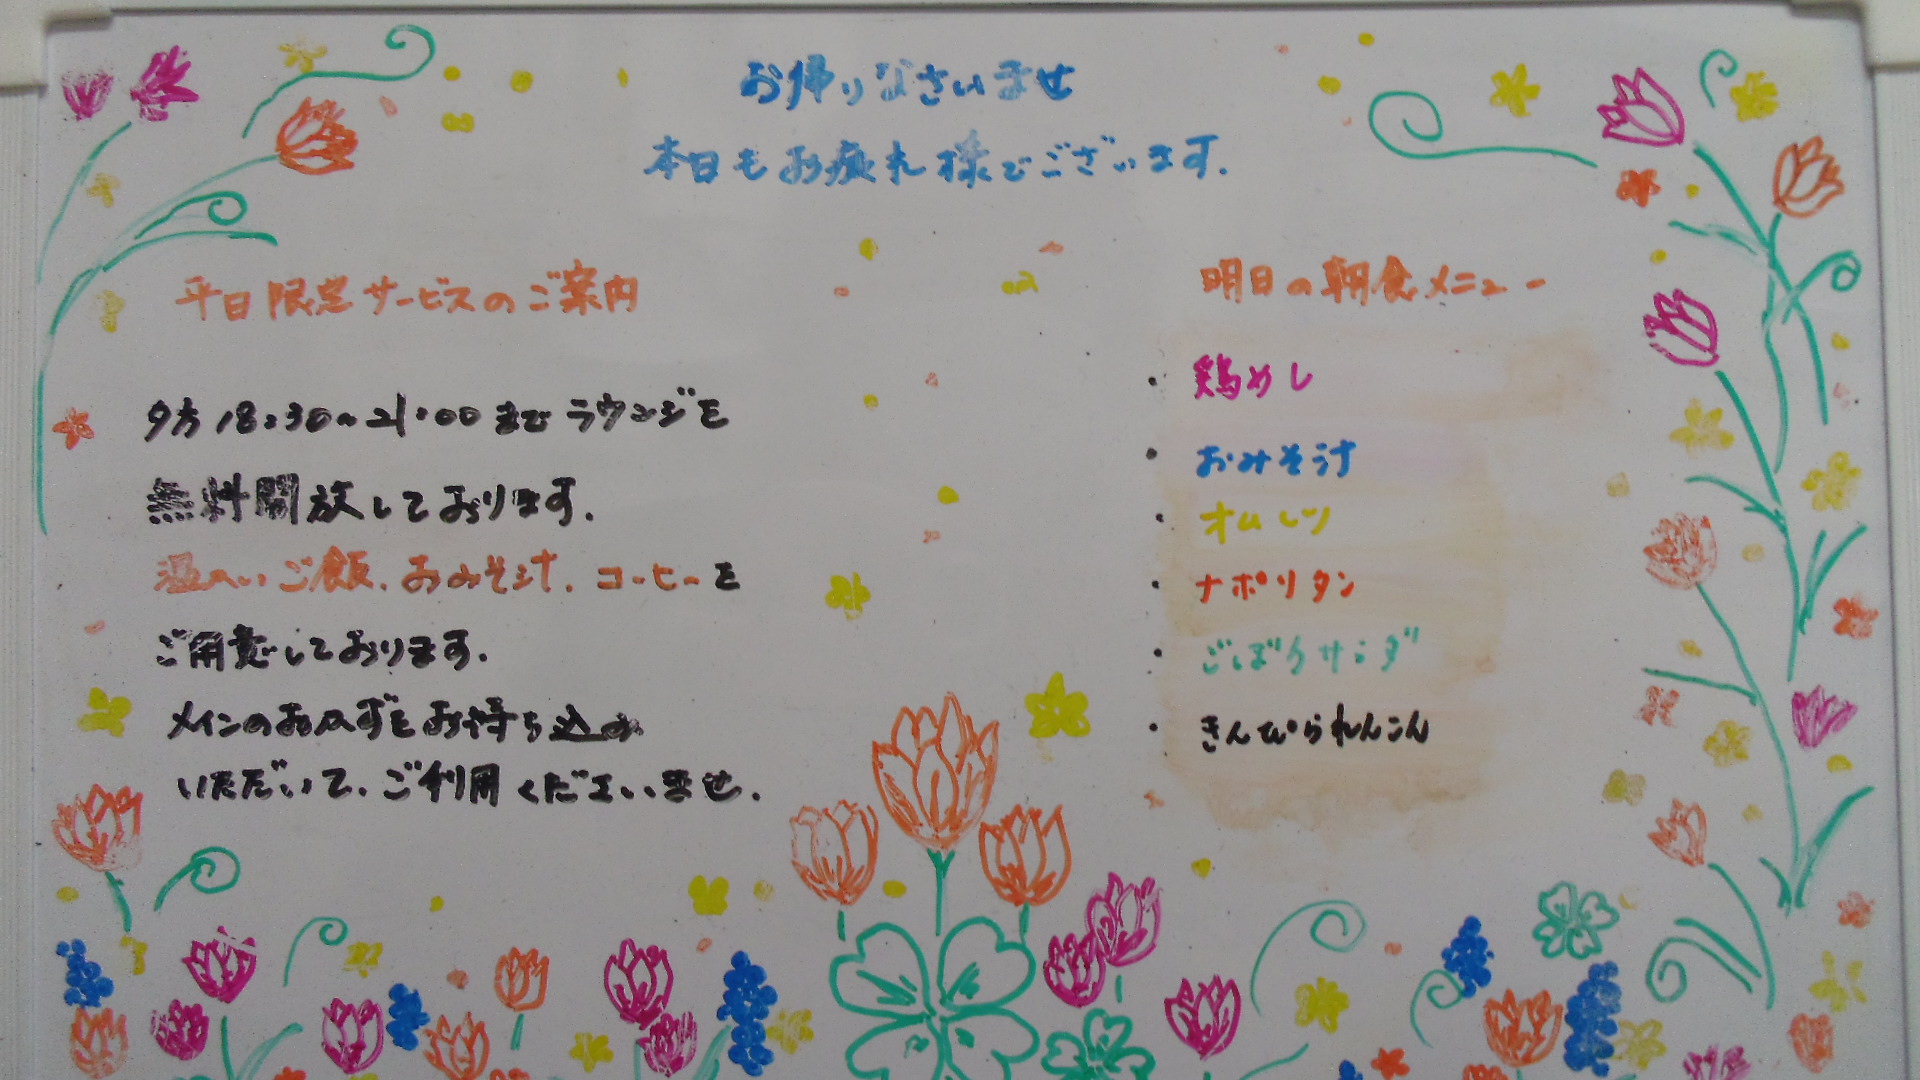 お帰りなさいませ
本日もお疲れ様でございます.
平日限定サービスのご案内
夕方18:30〜21:00までラウンジを
無料開放しております.
温かいご飯.おみそ汁.コーヒーを
ご用意しております.
メインのおかずをお持ち込み
いただいて.ご利用くださいませ.
明日の朝食メニュー
・鶏めし
・おみそ汁
・オムレツ
・ナポリタン
・ごぼうサラダ
・きんぴられんこん